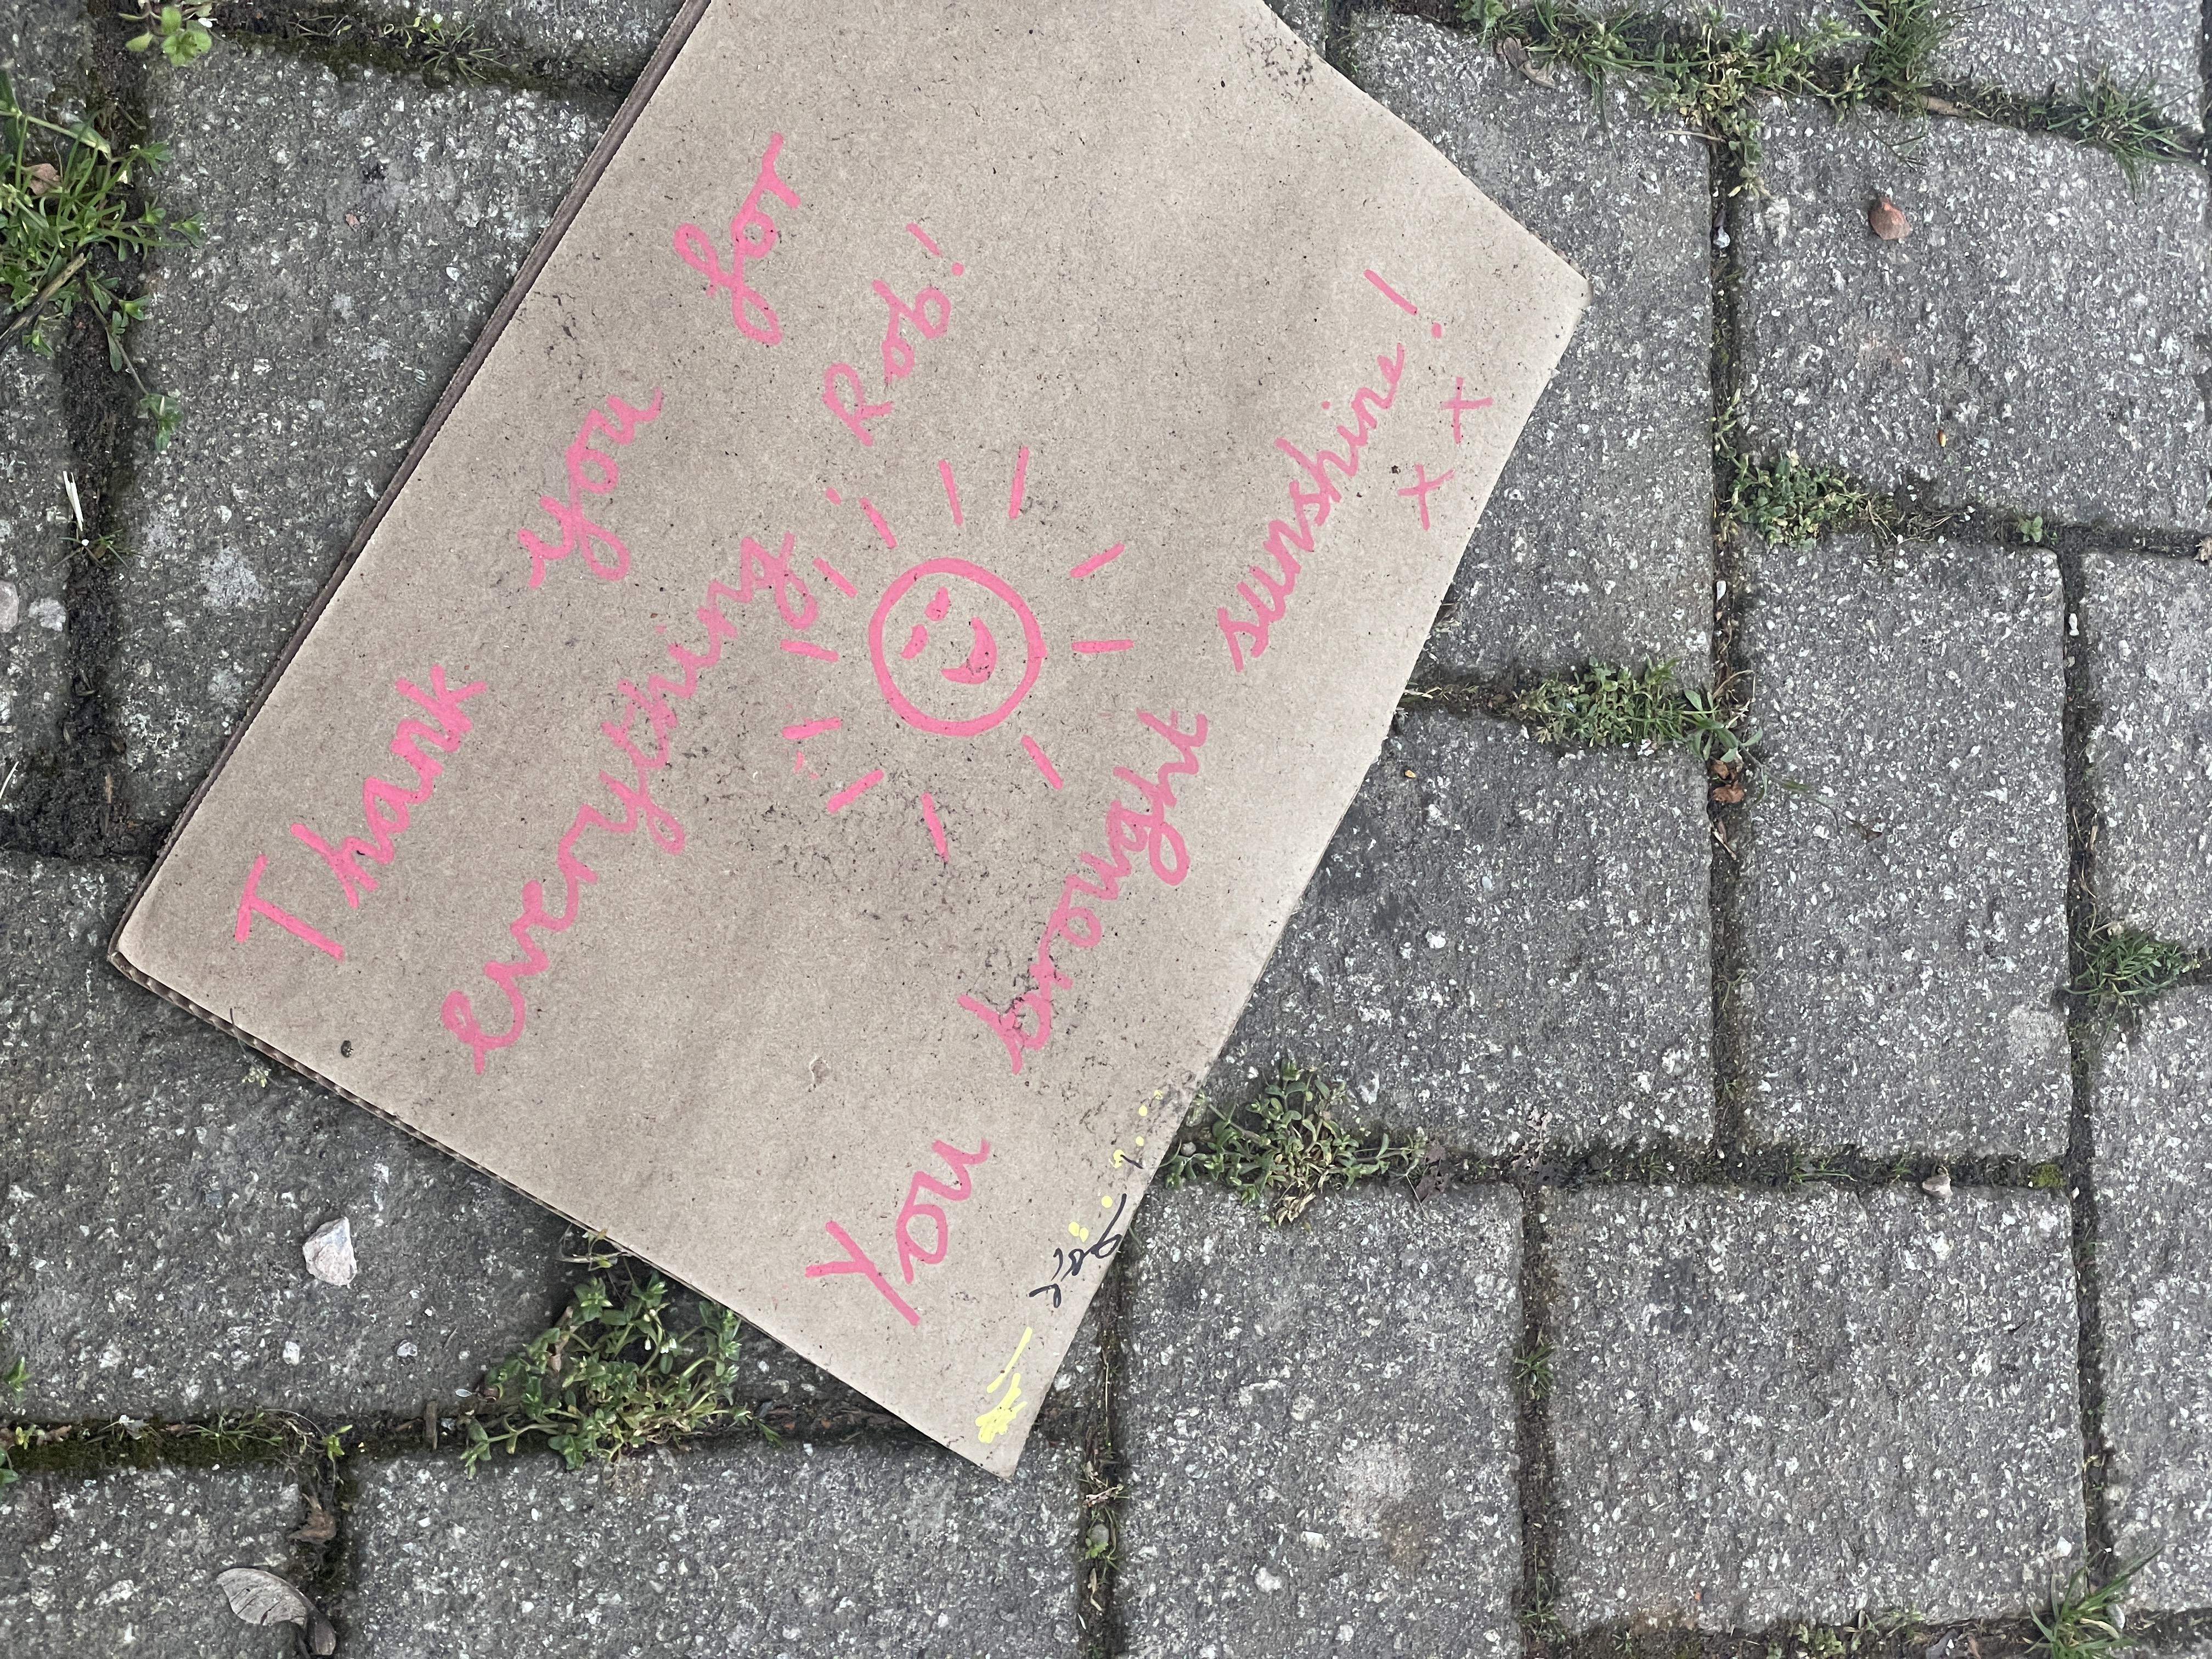 Thank you for
everything, Rob!
You brought sunshine!
x x